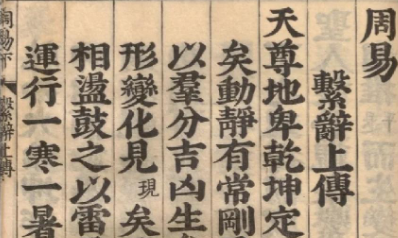 周易
繫辭上傳
天尊地卑乾坤定
矣動靜有常剛
以羣分吉凶生
形變化見現矣
相盪鼓之以雷
運行一寒一暑
繫辭上傳